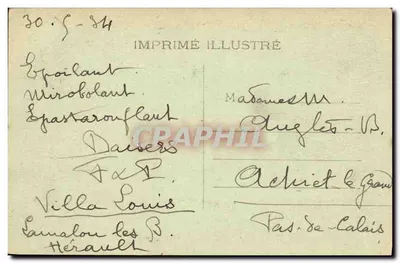 30.5.34
IMPRIMÉ ILLUSTRÉ
Epoilant
Mirobolant
Epastarouflant
Daivers
F & P
Villa Louis
Lamalou les B.
Hérault
Madame M.
Anglès-B.
Achiet le Grand
Pas-de-Calais
CARPHIL